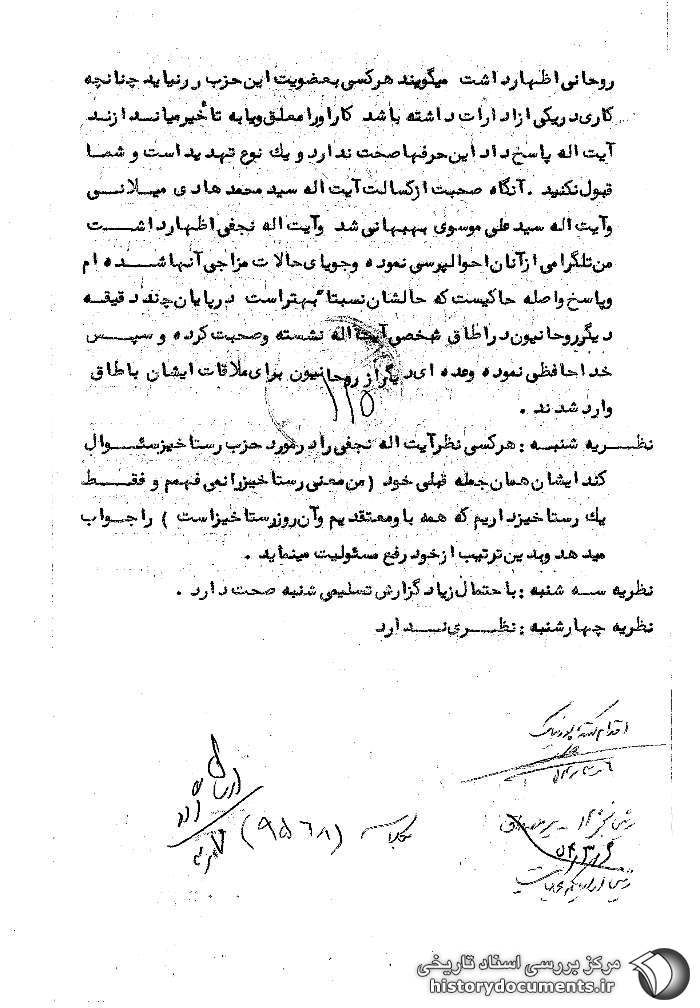 روحانی اظهار داشت میگویند هر کسی بعضویت این حزب در نیاید چنانچه
کاری در یکی از ادارات داشته باشد کار او را معلق و یا به تأخیر میاندازند
آیت اله پاسخ داد این حرفها صحت ندارد و یك نوع تهدید است و شما
قبول نکنید . آنگاه صحبت از کسالت آیت اله سید محمد هادی میلانی
و آیت اله سید علی موسوی بهبهانی شد و آیت اله نجفی اظهار داشت
من تلگرامی از آنان احوالپرسی نموده و جویای حالات مزاجی آنها شده ام
و پاسخ واصله حاکیست که حالشان نسبتاً بهتر است در پایان چند دقیقه
دیگر روحانیون در اطاق شخصی آیت اله نشسته و صحبت کرده و سپس
خداحافظی نموده و عده ای دیگر از روحانیون برای ملاقات ایشان با طاق
وارد شدند .
۱۱۵
نظریه شنبه : هر کسی نظر آیت اله نجفی را در مورد حزب رستاخیز سئوال
کند ایشان همان جمله قبلی خود ( من معنی رستاخیز را نمی فهمم و فقط
یك رستاخیز داریم که همه با و معتقدیم و آن روز رستاخیز است ) را جواب
میدهد و بدین ترتیب از خود رفع مسئولیت مینماید .
نظریه سه شنبه : با حتمال زیاد گزارش تسلیمی شنبه صحت دارد .
نظریه چهارشنبه : نظری ندارد
(۹۵۶۸)
مرکز بررسی اسناد تاریخی
historydocuments.ir